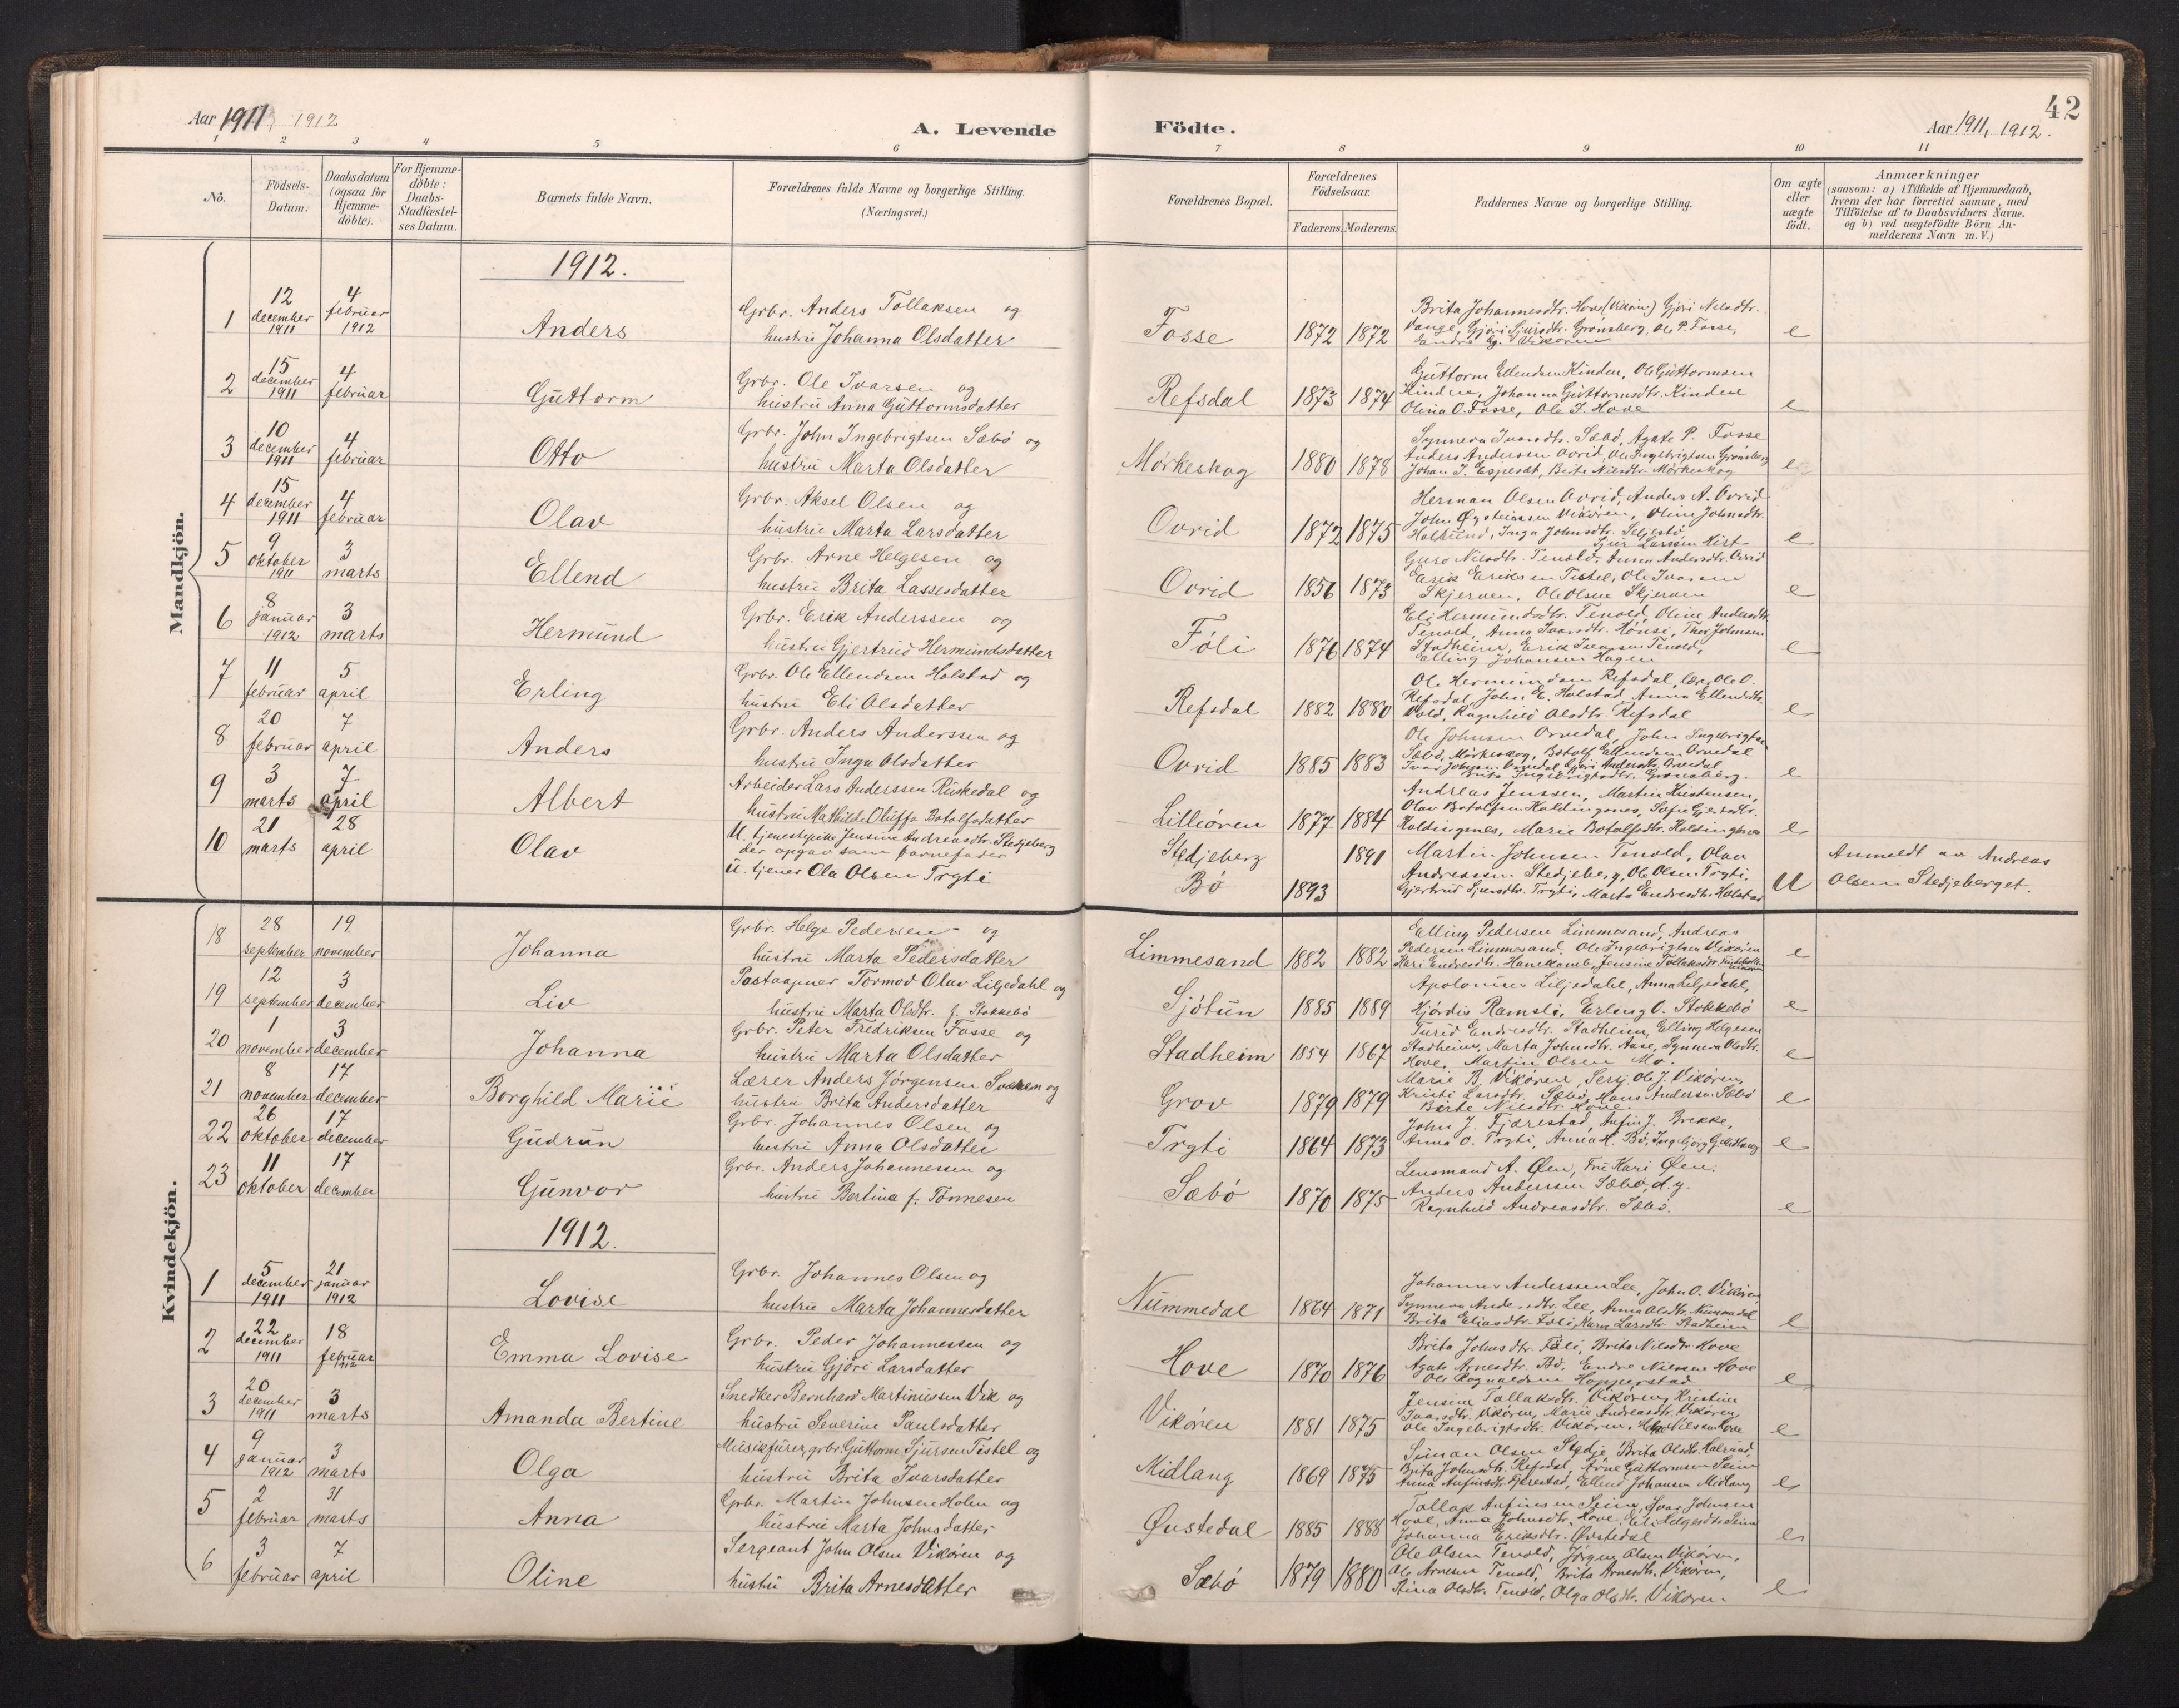 42
Aar 1911, 1912
A. Levende
Födte.
Aar 1911, 1912.
1 2 3 4 5 6 7 8 9 10 11
No.
Födsels-
Datum.
Daabsdatum
(ogsaa for
Hjemme-
döbte).
For Hjemme-
döbte:
Daabs-
Stadfæstel-
ses Datum.
Barnets fulde Navn.
Forældrenes fulde Navne og borgerlige Stilling.
(Næringsvei.)
Forældrenes Bopæl.
Forældrenes
Födselsaar.
Faderens. Moderens.
Faddernes Navne og borgerlige Stilling.
Om ægte
eller
uægte
födt.
Anmærkninger
(saasom: a) i Tilfælde af Hjemmedaab,
hvem der har forrettet samme, med
Tilföielse af to Daabsvidners Navne.
og b) ved uægtefödte Börn An-
melderens Navn m. V.)
Mandkjön.
1912.
1 12 december 1911 4 februar 1912 Anders
Grbr. Anders Tollaksen og
hustru Johanna Olsdatter
Fosse 1872 1872
Brita Johannesdtr. Hove (Vikören) Gjöri Nilsdtr.
Vange, Gjöri Sjursdtr. Grönsberg, Ole P. Fosse,
e
2 15 december 1911 4 februar Guttorm
Grbr. Ole Ivarsen og
hustru Anna Guttormsdatter
Refsdal 1873 1874
Guttorm Ellendsen Hinden, Ole Guttormsen
Hinden, Johanna Guttormsdtr. Hinden
Olina O. Fosse, Ole S. Hove
e
3 10 december 1911 4 februar Otto
Grbr. John Ingebrigtsen Sæbö og
hustru Marta Olsdatter
Mörkeskog 1880 1878
Synneva Ivarsdtr. Sæbö, Agate P. Fosse
Anders Anderssen Ovrid, Ole Ingebrigtsen Grönsberg
Johan J. Espeset, Brita Nilsdtr. Mörkeskog
e
4 15 december 1911 4 februar Olav
Grbr. Aksel Olsen og
hustru Marta Larsdatter
Ovrid 1872 1875
Herman Olsen Ovrid, Anders A. Ovrid
John Öysteinssen Vikören, Oline Johnsdtr.
Halsund, Inga Johnsdtr.
Sjur Larssen
e
5 9 oktober 1911 3 marts Ellend
Grbr. Arne Helgesen og
hustru Brita Lassesdatter
Ovrid 1856 1873
Guro Nilsdtr. Tenold, Anna Andersdtr. Ovrid
Erik Eriksen Tistel, Ole Ivarsen
Skjerven, Ole Olsen Skjerven
e
6 8 januar 1912 3 marts Hermund
Grbr. Erik Anderssen og
hustru Gjertrud Hermundsdatter
Föli 1876 1874
Eli Hermundsdtr. Tenold, Oline Andersdtr.
Tenold, Anna Ivarsdtr. Hönsi, Thor Johnsen
Stadheim, Erik Tenold,
Elling Johansen Hagen
e
7 11 februar 5 april Erling
Grbr. Ole Ellendsen Holstad og
hustru Eli Olsdatter
Refsdal 1882 1880
Ole Hermundsen Refsdal, Ole O.
Refsdal, John E. Holstad Anna Ellendsdtr.
Vold, Ragnhild Olsdtr. Refsdal
e
8 20 februar 7 april Anders
Grbr. Anders Anderssen og
hustru Inga Olsdatter
Ovrid 1885 1883
Ole Johnsen Orvedal, John Ingebrigtsen
Sæbö, Mörkeskog, Botolf Ellendsen Orvedal
Ivar Johnsen Orvedal, Gjöri Andersdtr. Orvedal
Brita Ingebrigtsdtr. Grönsberg.
e
9 3 marts 7 april Albert
Arbeider Lars Anderssen Riskedal og
hustru Mathilde Oluffa Botolfsdatter
Lilleören 1877 1884
Andreas Jenssen, Martin Kristensen,
Olav Botolfsen Holdingsnes, Sofie
Holdingsnes, Marie Botolfsdtr. Holdingsnes
e
10 21 marts 28 april Olav
U. tjenestepike Jensine Andreasdtr. Stedjeberg
der opgav som barnefader
u. tjener Ola Olsen Trgti
Stedjeberg 1891
Bö 1893
Martin Johnsen Tenold, Olav
Andreassen Stedjeberg, Ole Olsen Trgti,
Gjertrud Sjursdtr. Trgti, Marta Endresdtr. Holstad
U
Anmeldt av Andreas
Olsen Stedjeberget.
Kvindekjön.
18 28 september 19 november Johanna
Grbr. Helge Pedersen og
hustru Marta Pedersdatter
Limmesand 1882 1882
Elling Pedersen Limmesand, Andreas
Pedersen Limmesand, Ole Ingebrigtsen Vikören
Kari Endresdtr. Hanekamb, Jensine Tollaksdtr.
e
19 12 september 3 december Liv
Postaapner Tormod Olav Liljedahl og
hustru Marta Olsdtr. f. Stokkebö
Sjötun 1885 1889
Apolonius Liljedahl, Anna Liljedahl,
Hjördis Ramsli, Erling O. Stokkebö
e
20 1 november 3 december Johanna
Grbr. Peter Fredriksen Fosse og
hustru Marta Olsdatter
Stadheim 1854 1867
Turid Endresdtr. Stadheim, Elling Helgesen
Stadheim, Marta Johnsdtr. Aase, Synneva Olsdtr.
Hove, Martin Olsen Mo.
e
21 8 november 17 december Borghild Marie
Lærer Anders Jörgensen Sværen og
hustru Brita Andersdatter
Grov 1879 1879
Marie B. Vikören, Serj. Ole J. Vikören,
Kristi Larsdtr. Sæbö, Hans Andersen Sæbö
Birte Nilsdtr. Hove.
e
22 26 oktober 17 december Gudrun
Grbr. Johannes Olsen og
hustru Anna Olsdatter
Trgti 1864 1873
John J. Fjærestad, Anfin J. Brekke,
Anna O. Trgti, Anna H. Bö, Ingeborg G. Midlang
e
23 11 oktober 17 december Gunvor
Grbr. Anders Johannessen og
hustru Bertina f. Tönnesen
Sæbö 1870 1875
Lensmand A. Öen, Fru Kari Öen,
Anders Anderssen Sæbö, d.y.
Ragnhild Andreasdtr. Sæbö.
e
1912.
1 5 december 1911 21 januar 1912 Lovise
Grbr. Johannes Olsen og
hustru Marta Johannesdatter
Nummedal 1864 1871
Johannes Anderssen Lee, John O. Vikören
Synneva Andersdtr. Lee, Anna Olsdtr. Nummedal
Brita Eliasdtr. Föli, Karn Larsdtr. Stadheim
e
2 22 december 1911 18 februar 1912 Emma Lovise
Grbr. Peder Johannessen og
hustru Gjöri Larsdatter
Hove 1870 1876
Brita Johnsdtr. Föli, Brita Nilsdtr. Hove
Agate Arnesdtr. Bö, Endre Nilssen Hove
Ole Rognaldsen Hopperstad
e
3 20 december 1911 3 marts Amanda Bertine
Snedker Bernhard Martinussen Vik og
hustru Severine Paulsdatter
Vikören 1881 1875
Jensine Tollaksdtr. Vikören, Kristine
Ivarsdtr. Vikören, Marie Andreasdtr. Vikören,
Ole Ingebrigtsdtr. Vikören, Helge Nilssen Hove
e
4 9 januar 1912 3 marts Olga
Musikfurer, grbr. Guttorm Sjursen Tistel og
hustru Brita Ivarsdatter
Midlang 1869 1875
Simon Olsen Stedje, Brita Olsdtr. Halsund
Brita Johnsdtr. Refsdal, Arne Guttormsen Seim
Anna Anfinsdtr. Fjerestad, Ellend Johansen Midlang
e
5 2 februar 31 marts Anna
Grbr. Martin Johnsen Holen og
hustru Marta Johnsdatter
Övstedal 1885 1888
Tollak Anfinsen Seim, Ivar Johnsen
Hove, Anna Johnsdtr. Hove, Eli Helgesdtr. Seim
Johanna Eriksdtr. Övstedal
e
6 3 februar 7 april Oline
Sergeant John Olsen Vikören og
hustru Brita Arnesdatter
Sæbö 1879 1880
Ole Olsen Tenold, Jörgen Olsen Vikören,
Ole Arnesen Tenold, Brita Arnesdtr. Vikören,
Stina Olsdtr. Tenold, Olga Olsdtr. Vikören.
e